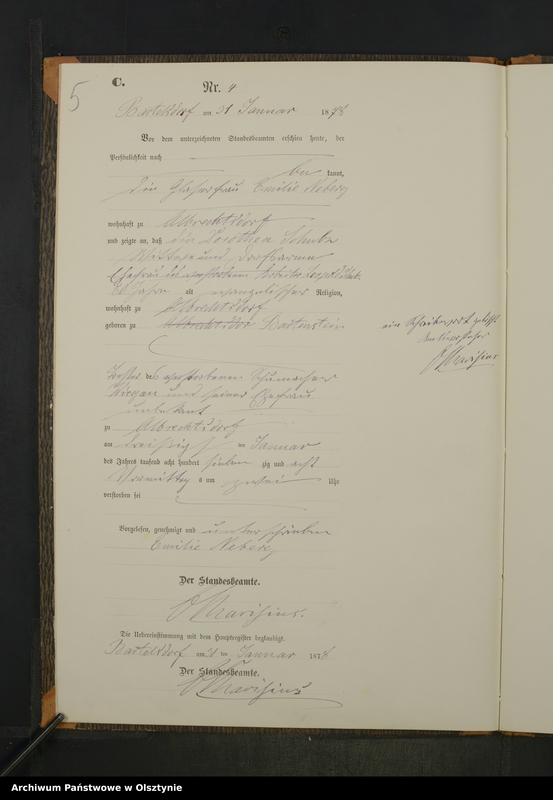 5
C.
Nr. 4
Bartelsdorf am 31 Januar 1878
Vor dem unterzeichneten Standesbeamten erschien heute, der
Persönlichkeit nach
bekannt,
die Glaserfrau Emilie Neberg
wohnhaft zu Albrechtsdorf
und zeigte an, daß die Dorothea Schulz
Wittwe und Dorfarme
Ehefrau des verstorbenen Arbeiter
Jahre alt evangelischer Religion,
wohnhaft zu Albrechtsdorf
geboren zu Albrechtsdor Bartenstein
Tochter des verstorbenen Schumacher
und seiner Ehefrau
unbekant
zu Albrechtsdorf
am dreißig ten Januar
des Jahres tausend acht hundert sieben zig und acht
Vormittag s um zwei Uhr
verstorben sei
Vorgelesen, genehmigt und unterschrieben
Emilie Neberg
Der Standesbeamte.
Die Uebereinstimmung mit dem Hauptregister beglaubigt.
Bartelsdorf am 31 ten Januar 1878
Der Standesbeamte.
ein Schreibwort gelöscht
Archiwum Państwowe w Olsztynie